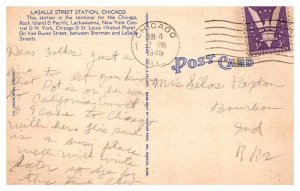 LASALLE STREET STATION, CHICAGO
This station is the terminal for the Chicago,
Rock Island & Pacific, Lackawanna, New York Cen-
tral & N. York, Chicago & St. Louis (Nickel Plate)
On Van Buren Street between Sherman and LaSalle
Streets.
CHICAGO
JUN 4
PM
1945
POST CARD
Dear Folks: Just a
to let you know
Dot is on her way
California. Janet &
I came to Chicago
with her. This sure
is a busy place
Well will write
later so bye for
this time
Mrs Silas Paxton
Bourbon
Ind
RR2